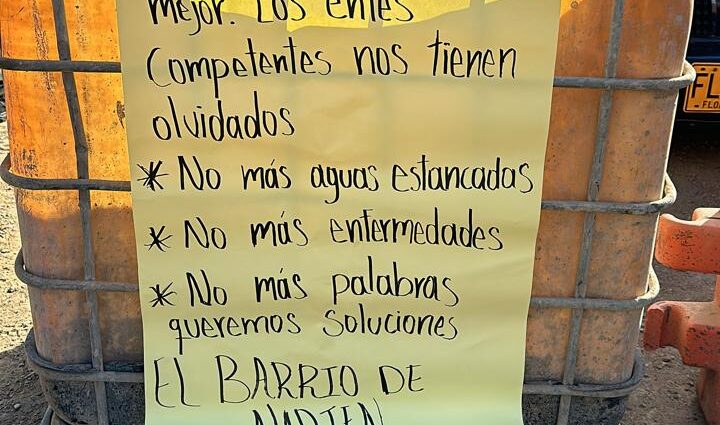 mejor. Los entes
Competentes nos tienen
olvidados
* No más aguas estancadas
* No más enfermedades
* No más palabras
queremos soluciones
EL BARRIO DE
NADIEN
FL
FLO